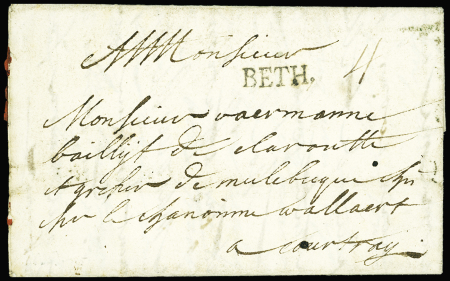 A Monsieur
BETH. 4
Monsieur vaermanne
baillijt de clavoutte
& grefier de mulebeque chéz
chr le chanoinne wallaert
a courtray